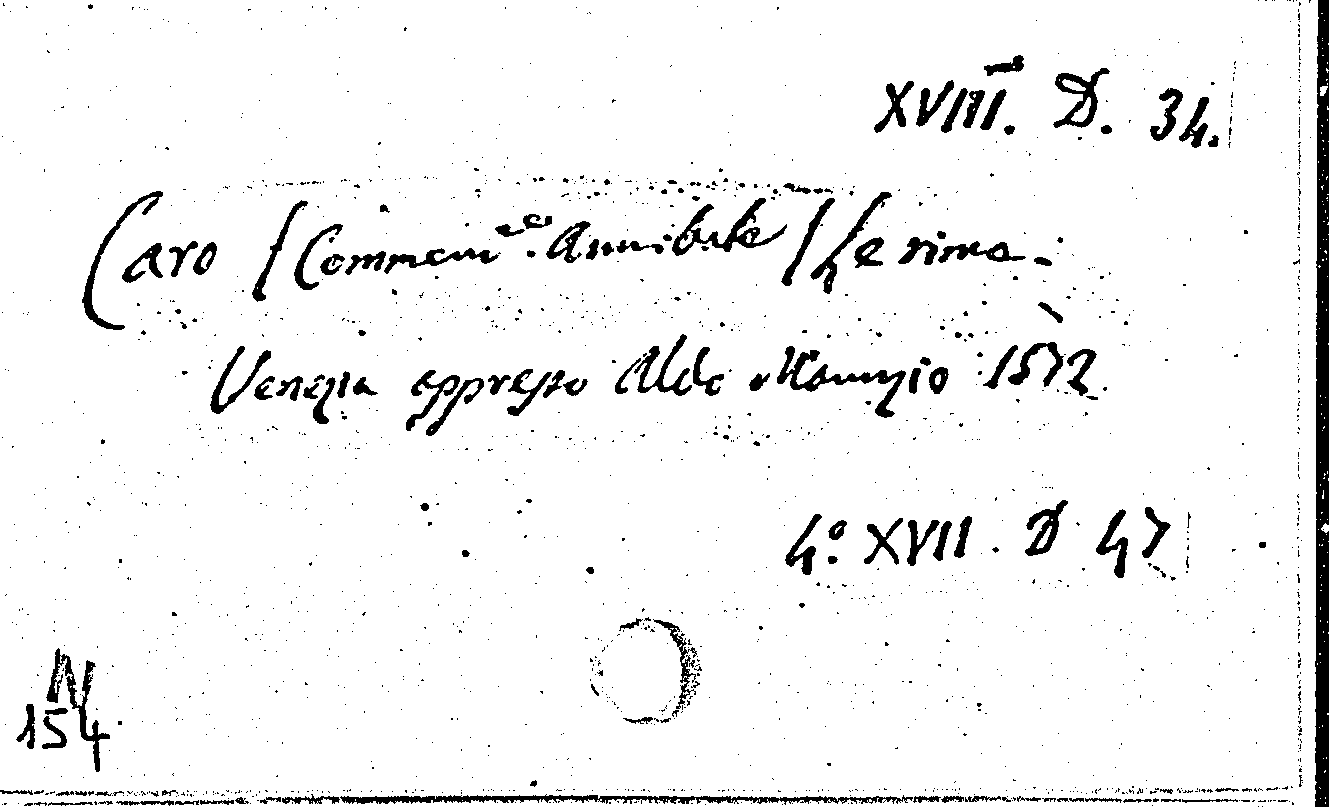 XVIII. D. 34.
Caro (Commen.re Annibale) Le rime.
Venezia appresso Aldo Manuzio 1572
4.o XVII. D 47
N
154